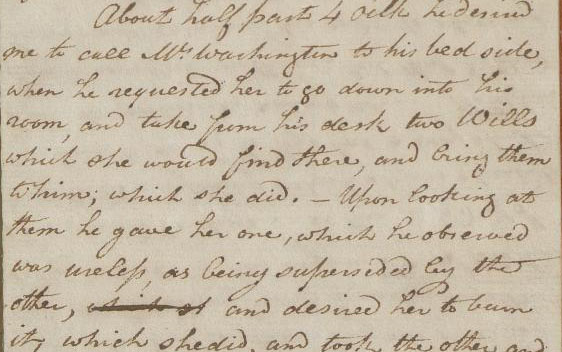 About half past 4 Oclk he desired
me to call Mrs. Washington to his bed side,
when he requested her to go down into his
room, and take from his desk two Wills
which she would find there, and bring them
to him; which she did. – Upon looking at
them he gave her one, which he observed
was useless, as being superseded by the
other, and desired her to burn
it, which she did, and took the other and